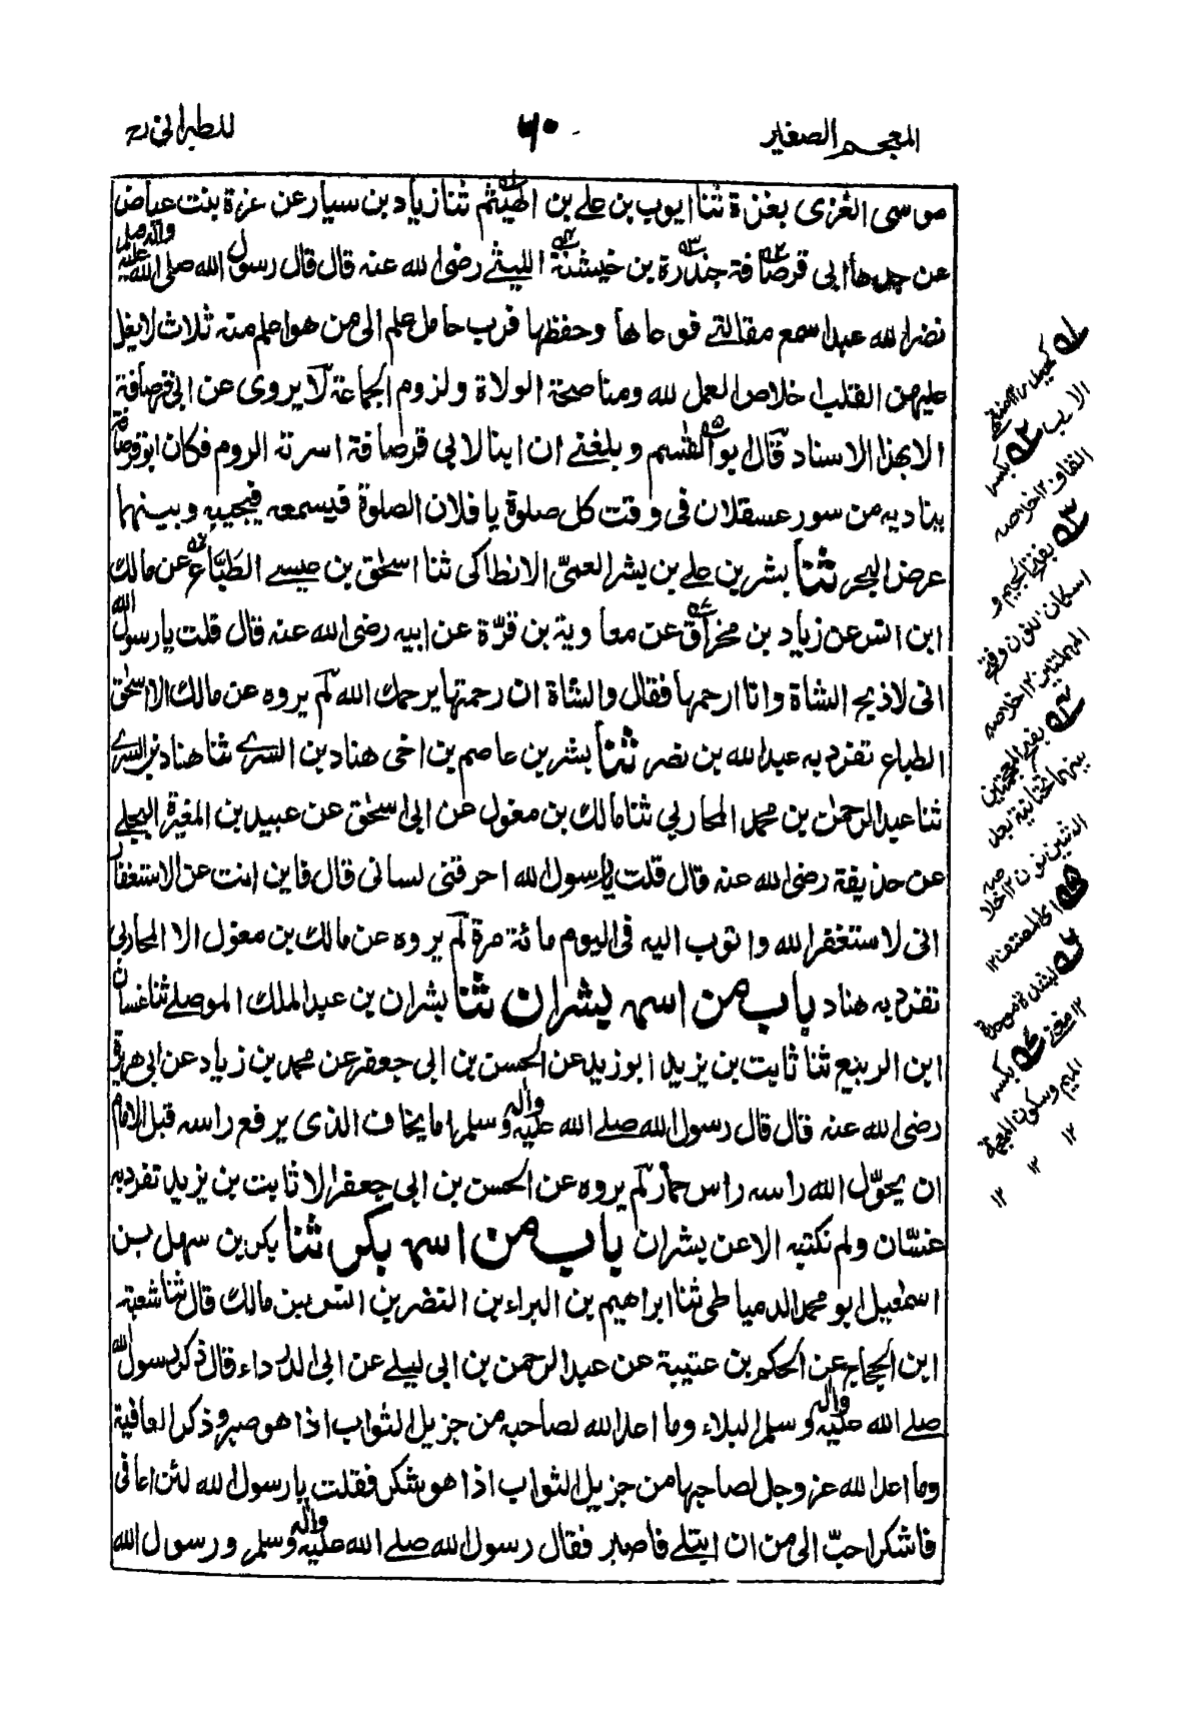 المعجم الصغير
٦٠
للطبرانی رح
موسی الغزی بغزة ثنا ایوب بن علی بن الهیثم ثنا زیاد بن سیار عن عزة بنت عیاض
عن جدها ابی قرصافة جندرة بن خیشنة اللیثی رضی الله عنه قال قال رسول الله صلی الله علیه واله وسلم
نضر الله عبدا سمع مقالتی فوعاها وحفظها فرب حامل علم الی من هو اعلم منه ثلاث لا یغل
علیهن القلب اخلاص العمل لله ومناصحة الولاة ولزوم الجماعة لا یروی عن ابی قرصافة
الا بهذا الاسناد قال ابو القسم وبلغنی ان ابنا لابی قرصافة اسرته الروم فکان ابو قرصافة
ینادیه من سور عسقلان فی وقت کل صلوة یا فلان الصلوة فیسمعه فیجیبه وبینهما
عرض البحر ثنا بشر بن علی بن بشر العمیّ الانطاکی ثنا اسحٰق بن عیسی الطَبَّاع عن مالك
ابن انس عن زیاد بن مخراق عن معاویة بن قرّة عن ابیه رضی الله عنه قال قلت یا رسول الله
انی لاذبح الشاة وانا ارحمها فقال والشاة ان رحمتها یرحمك الله لم یروه عن مالك الا اسحٰق
الطباع تفرد به عبد الله بن نصر ثنا بشر بن عاصم بن اخی هناد بن السری ثنا هناد بن السری
ثنا عبد الرحمٰن بن محمد المحاربی ثنا مالك بن مغول عن ابی اسحٰق عن عبید بن المغیرة البجلی
عن حذیفة رضی الله عنه قال قلت یا رسول الله احرقنی لسانی قال فاین انت عن الاستغفار
انی لاستغفر الله واتوب الیه فی الیوم مائة مرة لم یروه عن مالك بن مغول الا المحاربی
تفرد به هناد باب من اسمه بشران ثنا بشران بن عبد الملك الموصلی ثنا غسان
ابن الربیع ثنا ثابت بن یزید ابو زید عن الحسن بن ابی جعفر عن محمد بن زیاد عن ابی هریرة
رضی الله عنه قال قال رسول الله صلی الله علیه واله وسلم اما یخاف الذی یرفع راسه قبل الامام
ان یحوّل الله راسه راس حمار لم یروه عن الحسن بن ابی جعفر الا ثابت بن یزید تفرد به
غسّان ولم نکتبه الا عن بشران باب من اسمه بکر ثنا بکر بن سهل بن
اسمٰعیل ابو محمد الدمیاطی ثنا ابراهیم بن البراء بن النضر بن انس بن مالك قال ثنا شعبة
ابن الحجاج عن الحکم بن عتیبة عن عبد الرحمن بن ابی لیلی عن ابی الدرداء قال ذکر رسول الله
صلی الله علیه واله وسلم البلاء وما اعد الله لصاحبه من جزیل الثواب اذا هو صبر وذکر العافیة
وما اعد الله عز وجل لصاحبها من جزیل الثواب اذا هو شکر فقلت یا رسول الله لئن اعافی
فاشکر احبّ الی من ان ابتلی فاصبر فقال رسول الله صلی الله علیه واله وسلم ورسول الله
٢ بکسر
القاف ١٢ خلاصه
٣ بفتح الجیم و
اسکان النون وفتح
المهملتین ١٢ خلاصه
٤ بفتح المعجمتین
بینهما تحتانیة بعد
الشین نون ١٢ خلاصه
٥ ای المصنف ١٢
٦ بشدة موحدة
١٢ مغنی ٧ بکسر
المیم وسکون المعجمة
١٢
١٢
١٢